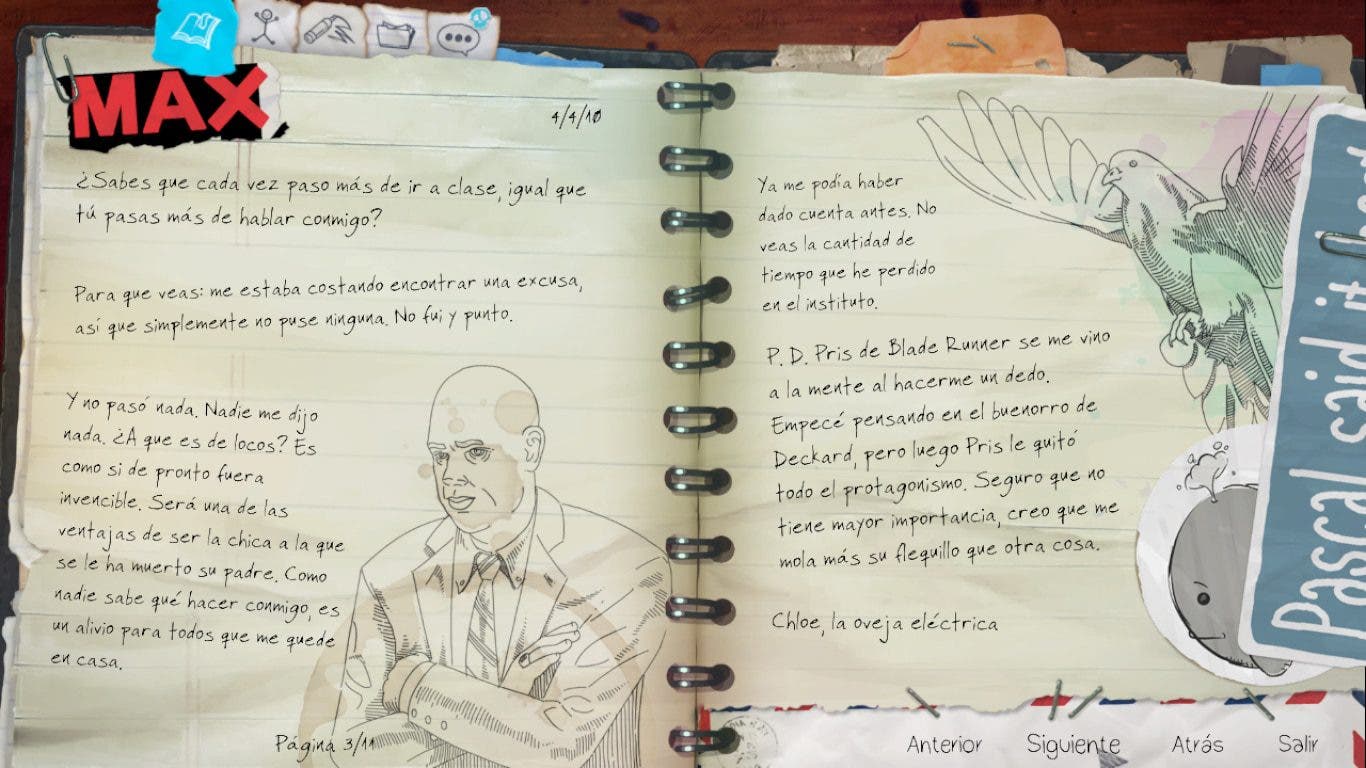 MAX
4/4/10
¿Sabes que cada vez paso más de ir a clase, igual que
tú pasas más de hablar conmigo?
Para que veas: me estaba costando encontrar una excusa,
así que simplemente no puse ninguna. No fui y punto.
Y no pasó nada. Nadie me dijo
nada. ¿A que es de locos? Es
como si de pronto fuera
invencible. Será una de las
ventajas de ser la chica a la que
se le ha muerto su padre. Como
nadie sabe qué hacer conmigo, es
un alivio para todos que me quede
en casa.
Página 3/11
Ya me podía haber
dado cuenta antes. No
veas la cantidad de
tiempo que he perdido
en el instituto.
P. D. Pris de Blade Runner se me vino
a la mente al hacerme un dedo.
Empecé pensando en el buenorro de
Deckard, pero luego Pris le quitó
todo el protagonismo. Seguro que no
tiene mayor importancia, creo que me
mola más su flequillo que otra cosa.
Chloe, la oveja eléctrica
Pascal said it
Anterior Siguiente Atrás Salir